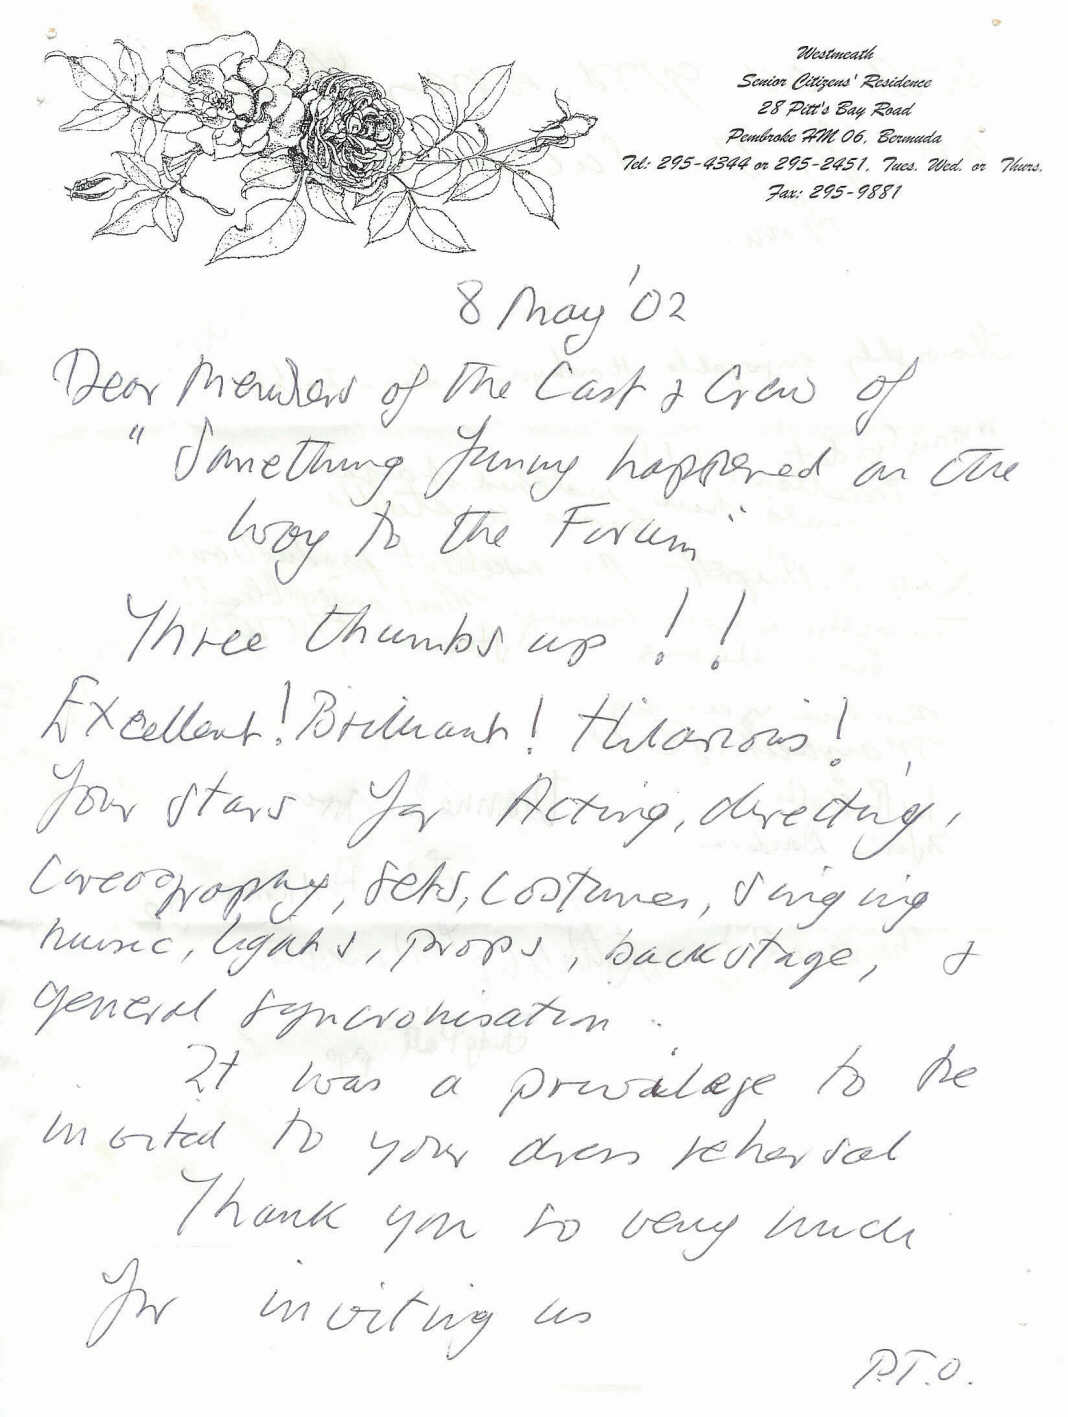 Westmeath
Senior Citizens' Residence
28 Pitt's Bay Road
Pembroke HM 06, Bermuda
Tel: 295-4344 or 295-2451, Tues. Wed. or Thurs.
Fax: 295-9881
8 May '02
Dear Members of the Cast & Crew of
"Something funny happened on the
way to the Forum"
Three thumbs up!!
Excellent! Brilliant! Hilarious!
Four stars for Acting, directing,
coreography, sets, costumes, singing
music, lights, props, backstage, &
general syncronisation.
It was a privailege to be
invited to your dress rehersal
Thank you so very much
for inviting us
P.T.O.